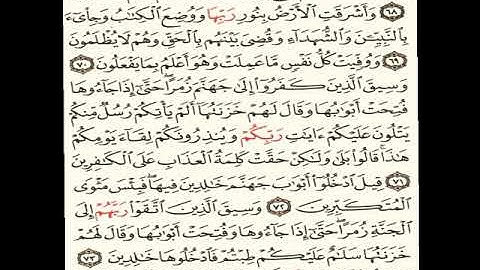 ٦٨ وَأَشْرَقَتِ ٱلْأَرْضُ بِنُورِ رَبِّهَا وَوُضِعَ ٱلْكِتَٰبُ وَجِا۟ىٓءَ
بِٱلنَّبِيِّـۧنَ وَٱلشُّهَدَآءِ وَقُضِىَ بَيْنَهُم بِٱلْحَقِّ وَهُمْ لَا يُظْلَمُونَ
٦٩ وَوُفِّيَتْ كُلُّ نَفْسٍ مَّا عَمِلَتْ وَهُوَ أَعْلَمُ بِمَا يَفْعَلُونَ
٧٠ وَسِيقَ ٱلَّذِينَ كَفَرُوٓا۟ إِلَىٰ جَهَنَّمَ زُمَرًا حَتَّىٰٓ إِذَا جَآءُوهَا
فُتِحَتْ أَبْوَٰبُهَا وَقَالَ لَهُمْ خَزَنَتُهَآ أَلَمْ يَأْتِكُمْ رُسُلٌ مِّنكُمْ
يَتْلُونَ عَلَيْكُمْ ءَايَٰتِ رَبِّكُمْ وَيُنذِرُونَكُمْ لِقَآءَ يَوْمِكُمْ
هَٰذَا قَالُوا۟ بَلَىٰ وَلَٰكِنْ حَقَّتْ كَلِمَةُ ٱلْعَذَابِ عَلَى ٱلْكَٰفِرِينَ
٧١ قِيلَ ٱدْخُلُوٓا۟ أَبْوَٰبَ جَهَنَّمَ خَٰلِدِينَ فِيهَا فَبِئْسَ مَثْوَى
ٱلْمُتَكَبِّرِينَ ٧٢ وَسِيقَ ٱلَّذِينَ ٱتَّقَوْا۟ رَبَّهُمْ إِلَى
ٱلْجَنَّةِ زُمَرًا حَتَّىٰٓ إِذَا جَآءُوهَا وَفُتِحَتْ أَبْوَٰبُهَا وَقَالَ لَهُمْ
خَزَنَتُهَا سَلَٰمٌ عَلَيْكُمْ طِبْتُمْ فَٱدْخُلُوهَا خَٰلِدِينَ ٧٣